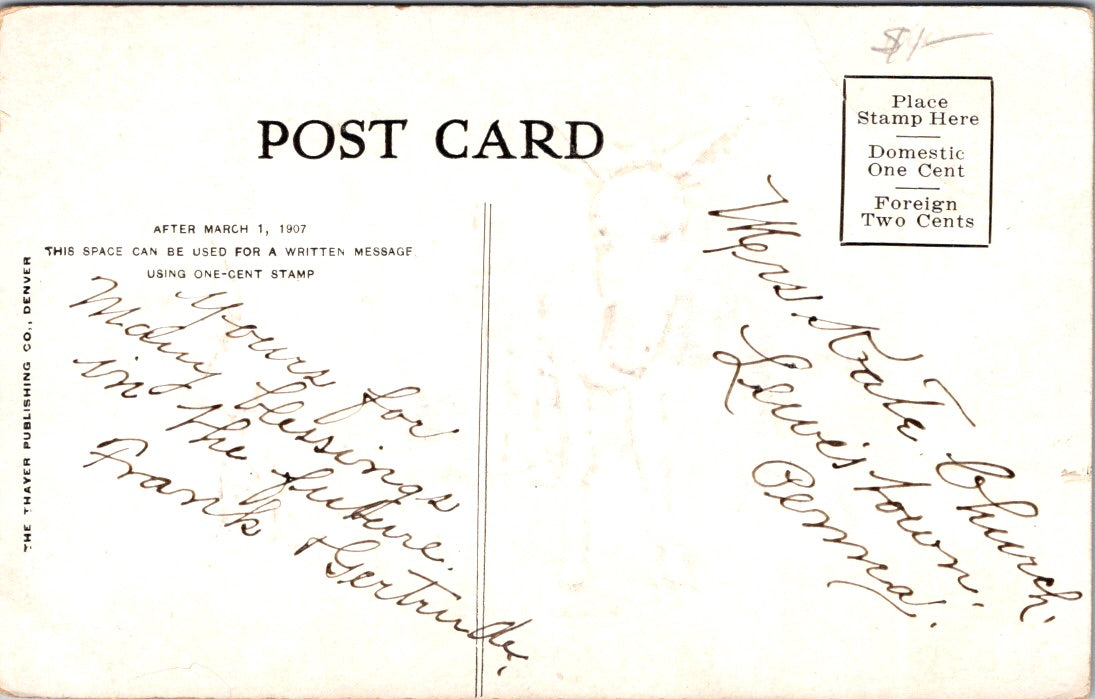 $1-
POST CARD
Place
Stamp Here
Domestic
One Cent
Foreign
Two Cents
AFTER MARCH 1, 1907
THIS SPACE CAN BE USED FOR A WRITTEN MESSAGE
USING ONE-CENT STAMP
THE THAYER PUBLISHING CO., DENVER
Yours for
Many blessings
in the future.
Frank & Gertrude.
Mrs. Kate Church.
Lewistown.
Penna.